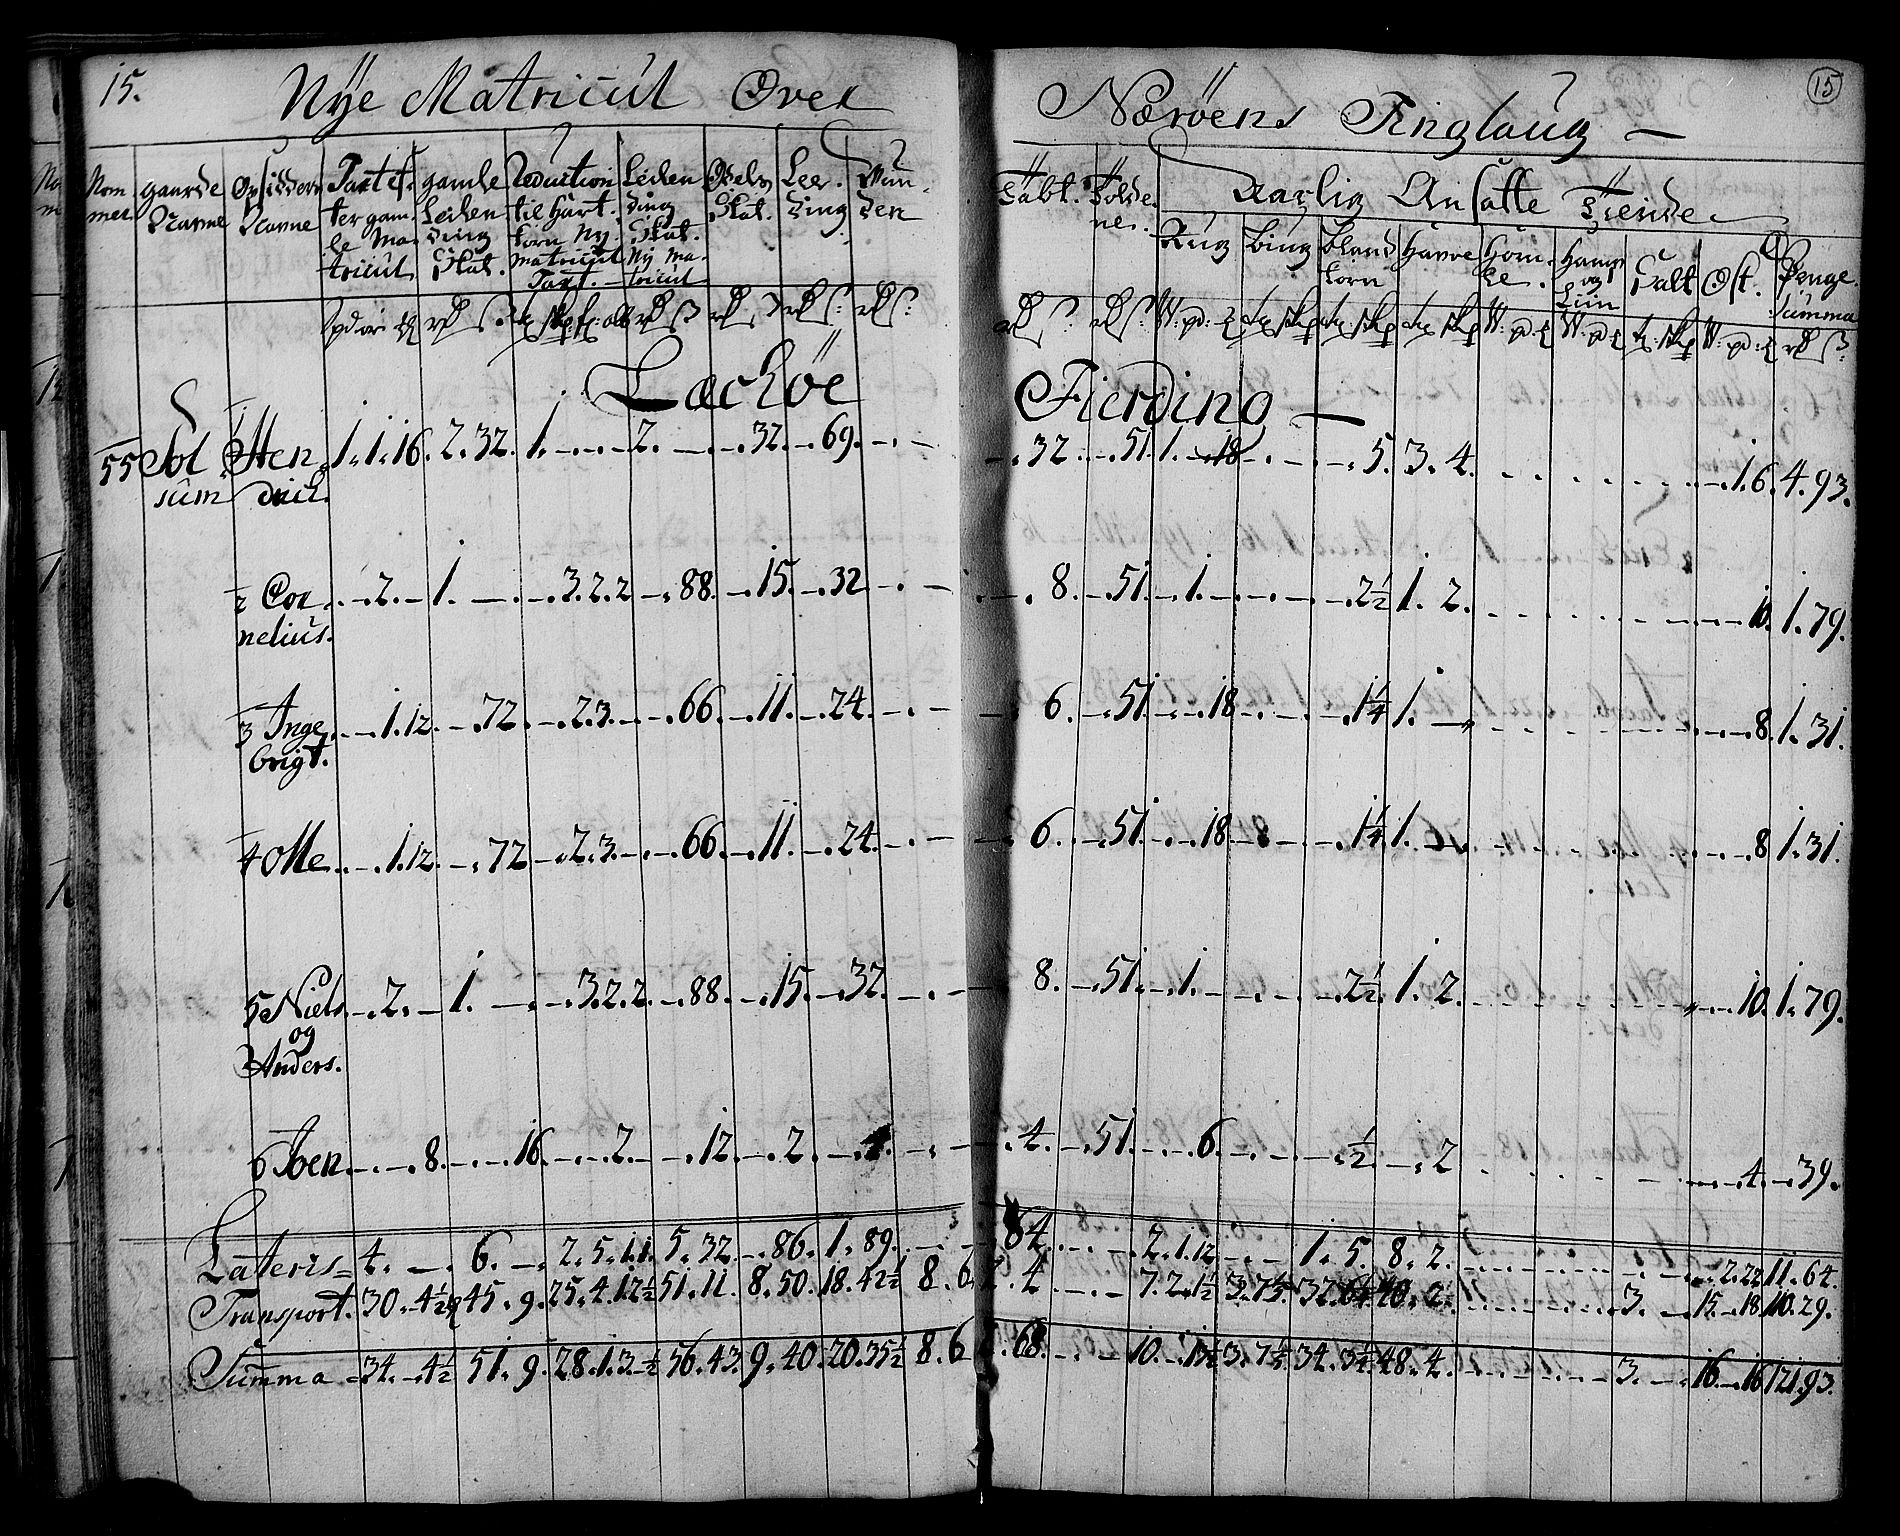 15. Nye Matricul Over Nærøens Tinglaug — 15
Nom mer. gaards Navne Opsidders Navne Taxt ef ter gam le Ma tricul gamle Leilen dings Skat. Reduction til Hart korn Ny matricul Taxt. Leilen dings Skat. Ny ma tricul Odels Skat. Lee ding Wun den
Tabt. Folde ne. Aarlig Ansatte Tiende
Rug Biug Bland korn Havre Hom le. Hamp og Liin Salt Ost. Penge Summa
Leckøe Fierding —
55 Sol sum 1 Hen drich. 1. 1. 16. 2. 32. 1. 2. 32. 69. 32. 51. 1. 18 5. 3. 4. 1. 6. 4. 93.
2 Cor nelius. 2. 1. 3. 2. 2 88. 15. 32 8. 51. 1. 2½ 1. 2. 10. 1. 79.
3 Inge brigt. 1. 12. 72. 2. 3. 66. 11. 24. 6. 51. 18. 1¼ 1. 8. 1. 31.
4 Olle. 1. 12. 72 2. 3. 66. 11. 24. 6. 51. 18. 1¼ 1. 8 1. 31.
5 Niels og Anders. 2. 1. 3. 2. 2. 88. 15. 32. 8. 51. 1. 2½. 1. 2. 10. 1. 79.
6 Iben 8. 16. 2. 12. 2. 4. 51. 6. ½. 2 4. 39.
Lateris 4. 6. 2. 5. 1. 1. 5. 32. 86. 1. 89. 84. 2. 1. 12 1. 5. 8. 2. 2. 22 11. 64.
Transport. 30. 4½ 45. 9. 25. 4. 1. 2½ 51. 11. 8. 50. 18. 42½ 8. 6. 4. 7. 2. 1½ 3. 7¼ 32. 40. 2. 3. 15. 18. 110. 29.
Summa 34. 4½ 51. 9. 28. 1. 3½ 56. 43. 9. 40. 20. 35½ 8. 6 68. 10. 1½ 3. 7¼ 34. 3¼ 48. 4. 3. 16. 16 121. 93.